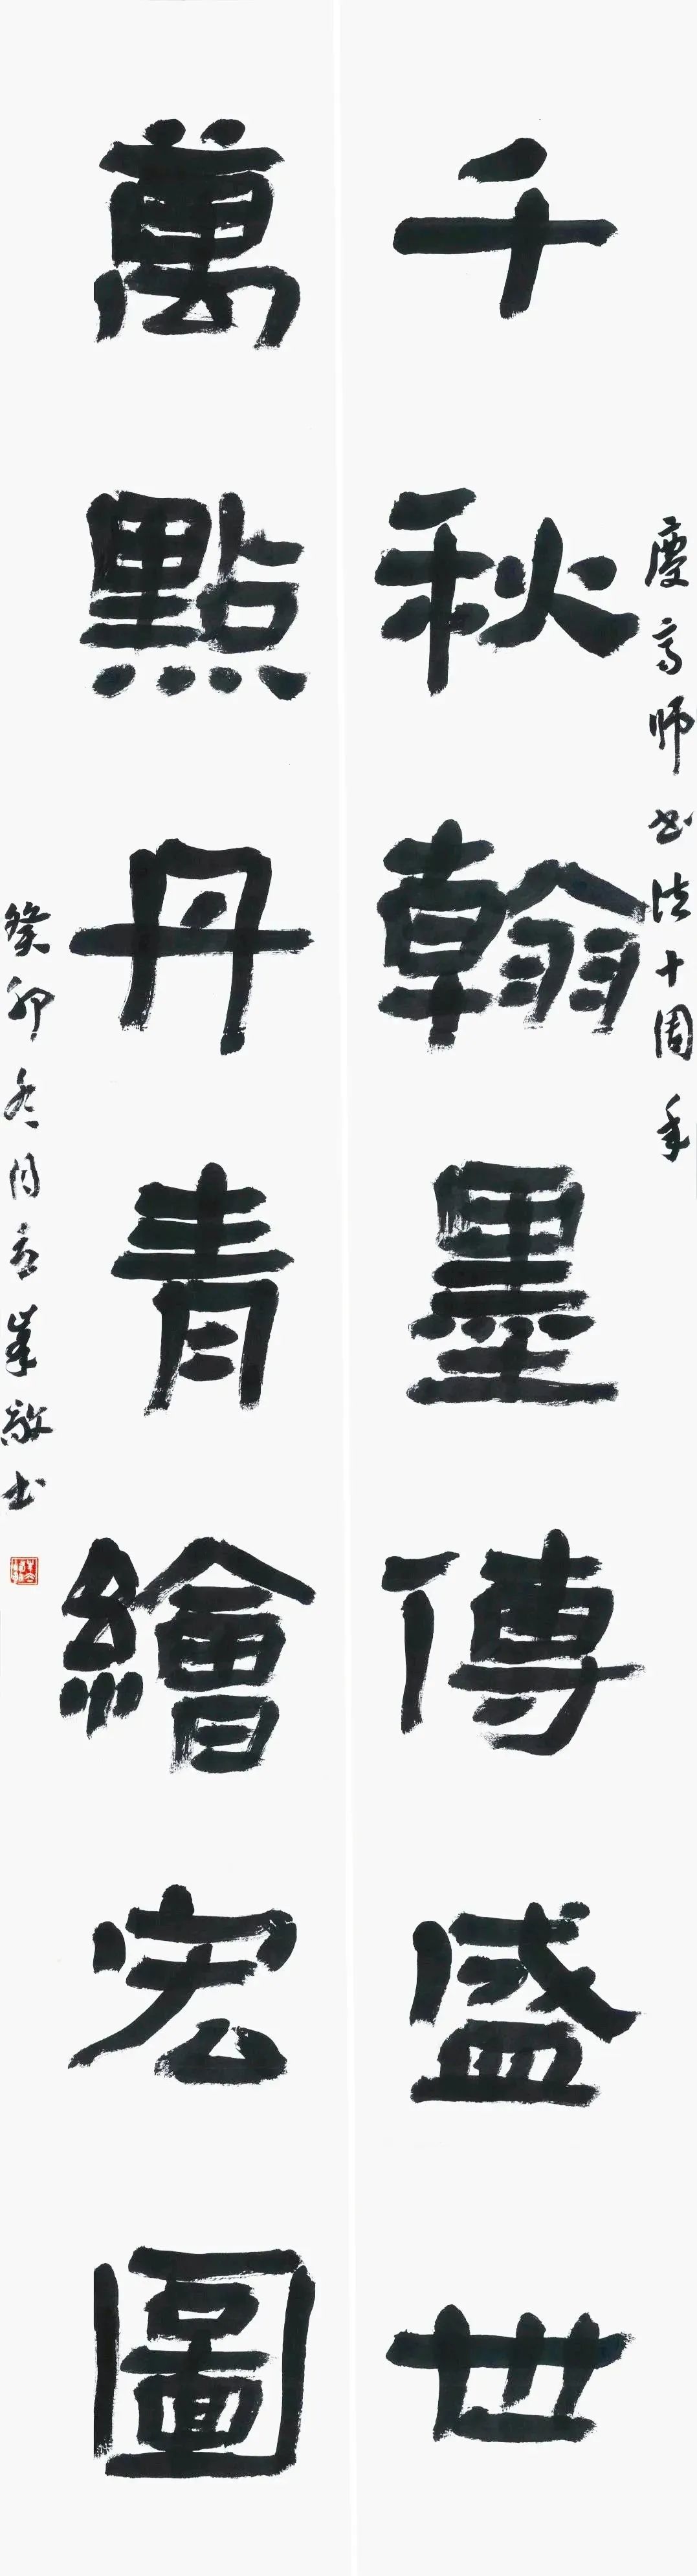 慶高师书法十周年
千秋翰墨傳盛世
萬點丹青繪宏圖
癸卯冬月 峯敬书